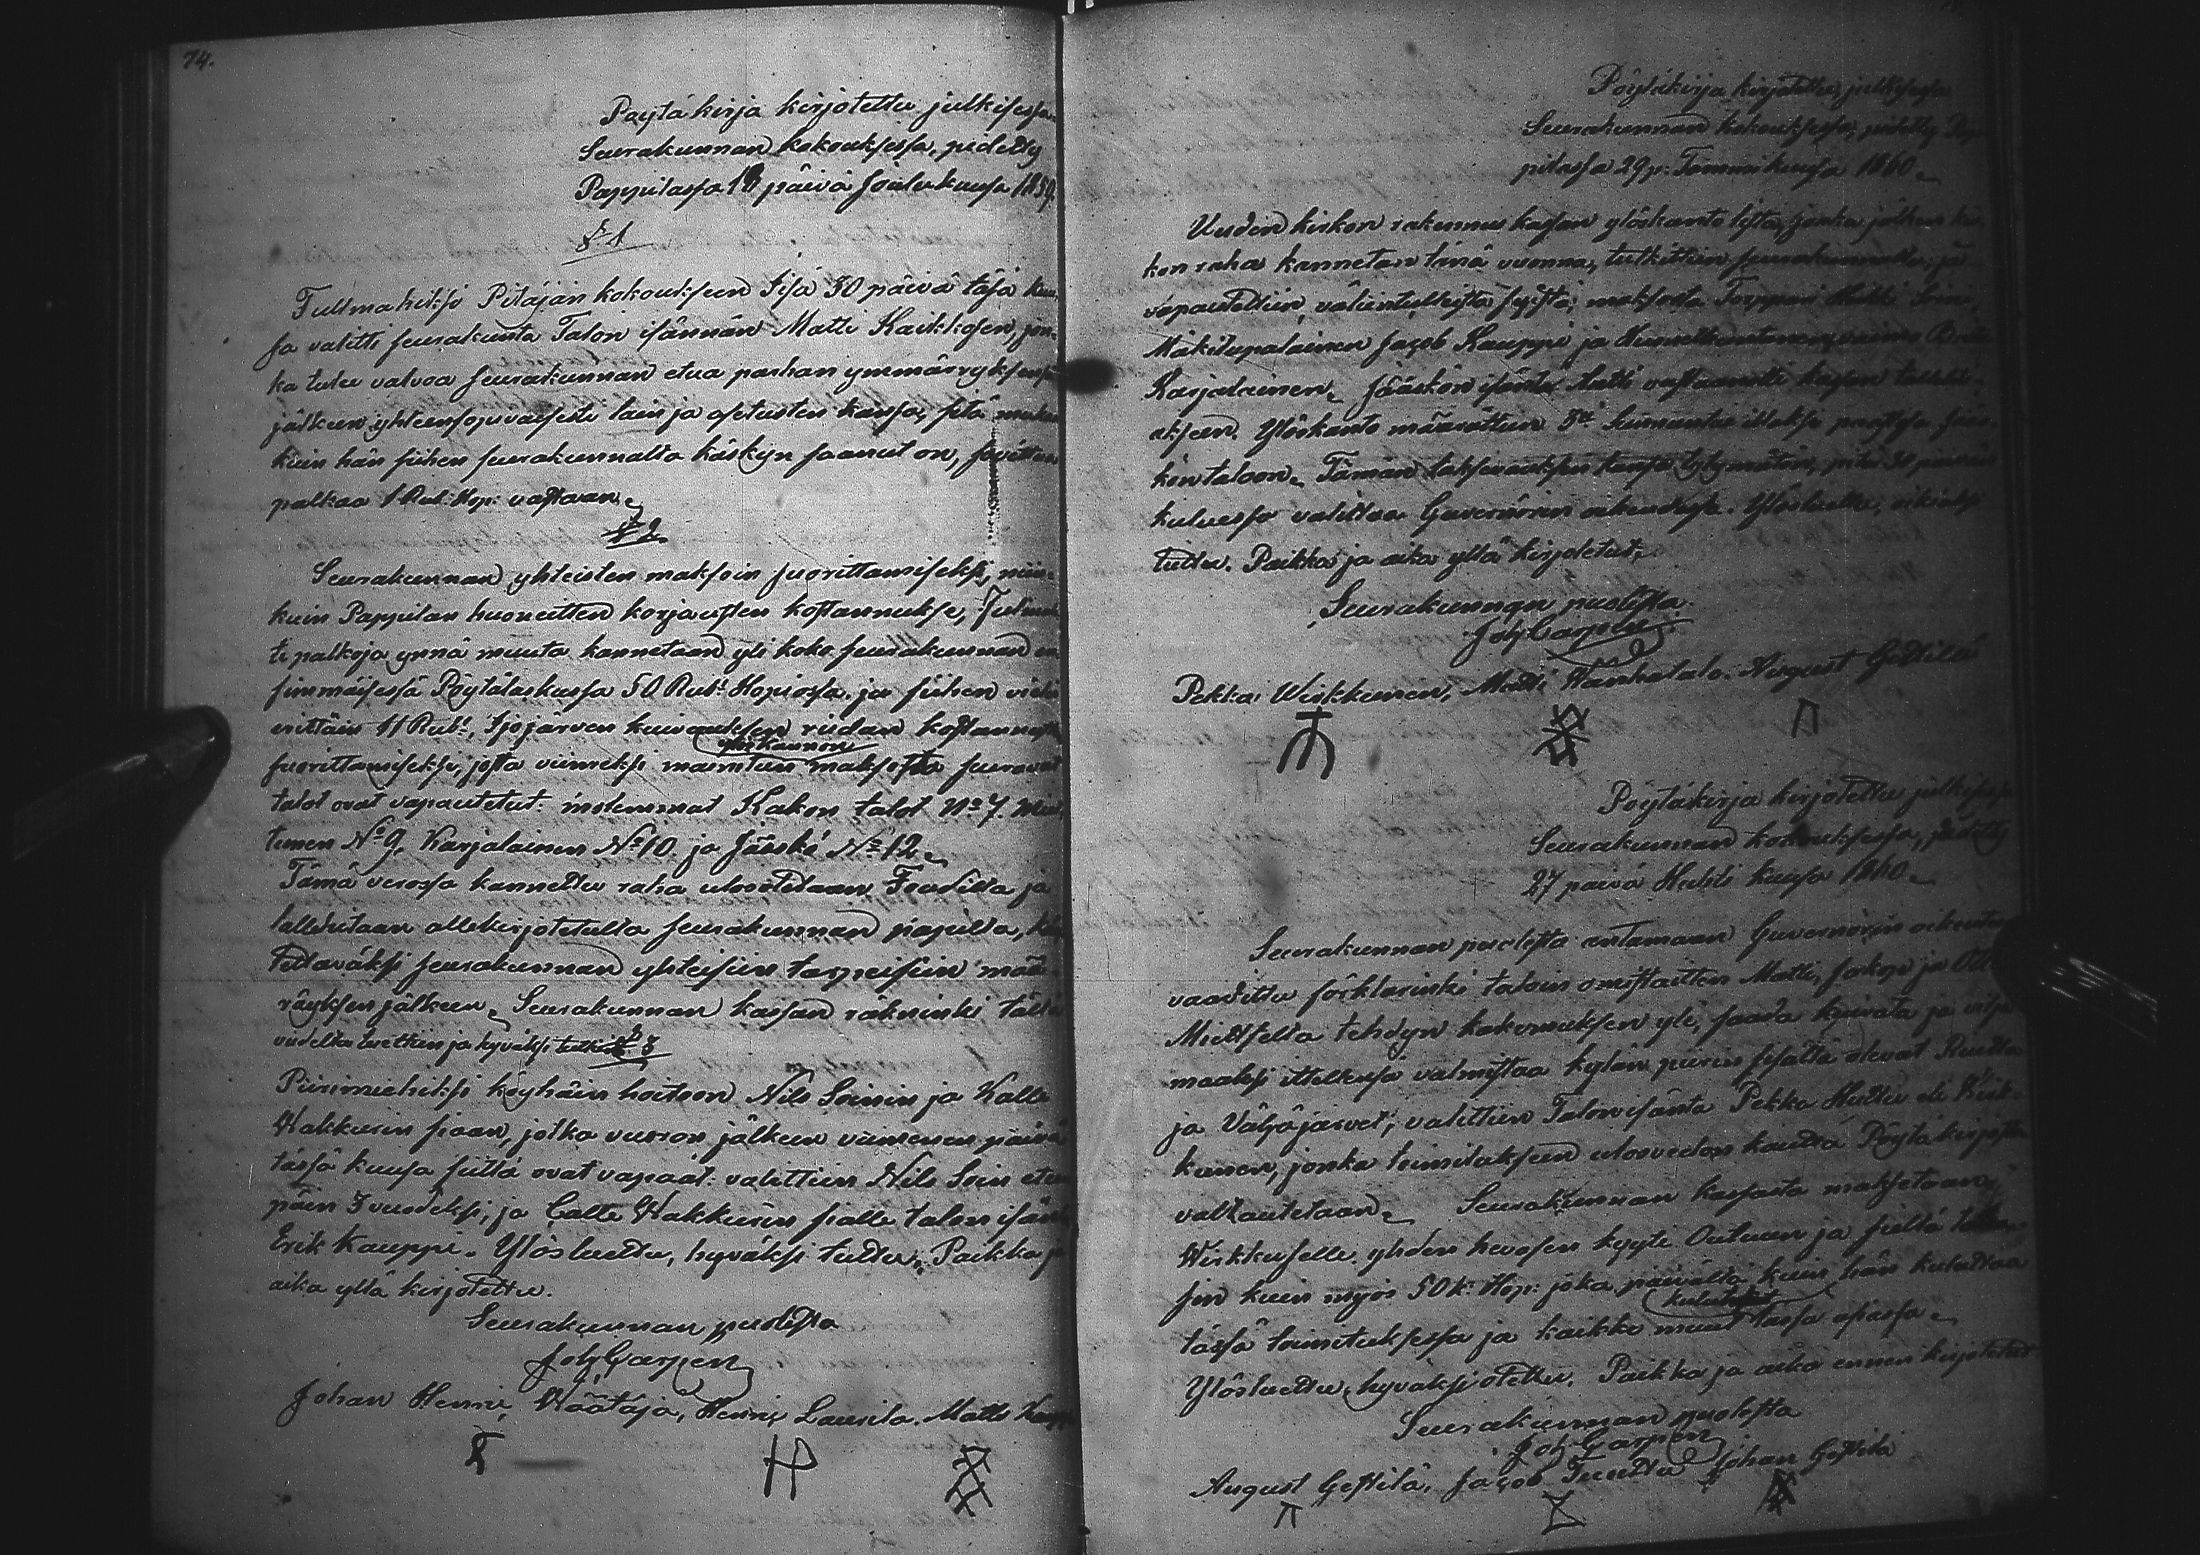 74.
Pöytäkirja kirjotettu julkisessa
Seurakunnan kokouksessa, pidetty
Pappilassa 18 päivä Joulukuusa 1859.
§ 1
Tullmahiksi Pitäjän kokoukseen sisä 30 päivä täsä kuu
sa valitti seurakunta Talon isännän Matti Kaikkosen, jon
ka tulee valvoa seurakunnan etua parhan ymmärryksensä
jälkeen yhteensopivaisesti lain ja asetusten kansa, sitä mukaa
kuin hän siihen seurakunnalta käskyn saanut on,
palkaa 1 Rub: Hop: vastaan.
§ 2
Seurakunnan yhteisten maksoin suorittamiseksi, niin
kuin Pappilan huoneitten korjausten kostannukse,
ti palkoja ynnä muuta kannetaan yli koko seurakunnan en
simmäisessä Pöytälaskussa 50 Rub: Hopiossa, ja siihen vielä
erittäin 11 Rub:, Isojärven kuivauksen riidan kostannusten
suorittamiseksi, josta viimeksi mainitun ylöskannon maksosta seuraavat
talot ovat vapautetut: molemmat Kakon talot No 7.
tunen No 9, Karjalainen No 10 ja Jääskö No 12.
Tämä verossa kannettu raha uloosotetaan Feudilta ja
talletetaan allekirjotetulta seurakunnan papilta, käy
tettäväksi seurakunnan yhteisiin tarpeisiin mää
räyksen jälkeen. Seurakunnan kassan räkninki tältä
vuodelta luettiin ja hyväksi tuttiin
§ 3
Piirimiehiksi köyhäin hoitoon Nils Soinin ja Kalle
Hakkurin siaan, jotka vuoron jälkeen viimeisenä päivä
tässä kuusa siittä ovat vapaat: valittiin Nils Soini eteen
päin 3 vuodeksi, ja Calle Hakkurin siaalle talon isäntä
Erik Kauppi. Ylösluettu, hyväksi tuttu. Paikka ja
aika yllä kirjotettu.
Seurakunnan puolesta
Joh Carpén
Johan Henric Määtäjä, Henric Laurila. Matti
Pöytäkirja kirjotettu julkisessa
Seurakunnan kokouksessa, pidetty Pap
pilassa 29 p: Tammikuusa 1860.
Uuden kirkon rakennus kassan ylöskanto lista, jonka jälkeen kir
kon raha kannetan tänä vuonna, tutkittiin seurakunnalta, ja
vapautettiin, väliintulleista syistä, maksosta Torppari Heikki Soini,
Mäkitupalainen Jacob Kauppi ja
Karjalainen. Jääskön isäntä Antti vastaanotti kassan talletta
akseen. Ylöskanto määrättiin 5en Sunnuntai illaksi
kön taloon. Tämän tahtoauksen kansa tytymätöin, pitä 30 päivän
kuluessa valittaa Guvernörin oikeudessa. Ylösluettu, oikiaksi
tuttu. Paikka ja aika yllä kirjotetut.
Seurakunnan puolesta.
Joh Carpén
Pekka Wirkkunen, Matti Wanhatalo. August Gestilä
Pöytäkirja kirjotettu julkisessa
Seurakunnan kokouksessa, pidetty
27 päivä Huhti kuusa 1860.
Seurakunnan puolesta antamaan Guvernörin oikeutta
vaadittu förklarinki taloin omistaitten Matti, Jaakopi ja Olli
Miettiseltä tehdyn hakemuksen yli, saada kuivata ja
maaksi ittellensä valmistaa kylän piirin sisällä olevat
ja Väljäjärvet, valittiin Talon isäntä Pekka Huttu eli Wirk
kunen, jonka toimitukseen uloosvedon kautta Pöytä kirjasta
valtautetaan. Seurakunnan kassasta maksetaan
Wirkkuselle yhden hevosen kyyti Ouluun ja sieltä takai
sin kuin myös 50 k: Hop: joka päivältä kuin hän kuluttaa
tässä toimituksessa ja kaikki muut kulutukset tässä asiassa.
Ylösluettu, hyväksi otettu. Paikka ja aika ennen kirjotetut
Seurakunnan puolesta
Joh Carpén
August Gestilä, Jacob Tuuttu Johan Gestilä